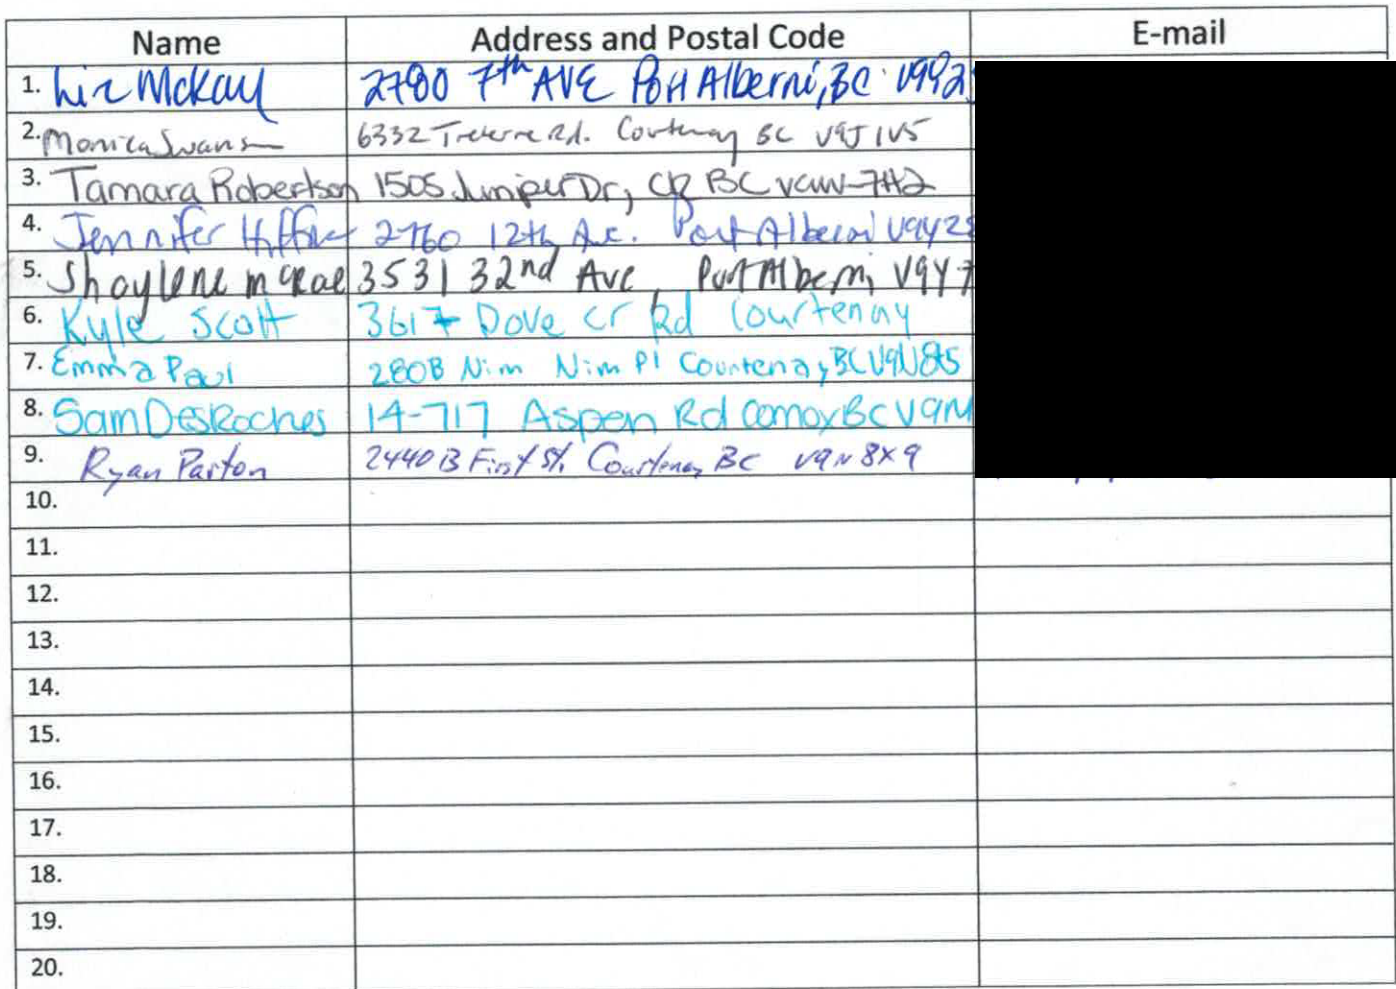 Name Address and Postal Code E-mail
1. Liz McKay 2780 7th AVE Port Alberni, BC V9Y2
2. Monica Swans 6332 Rd. Courtenay BC V9J 1V5
3. Tamara Robertson 1505 Juniper Dr, CR BC V9W-7H2
4. Jennifer 2760 12th Ave. Port Alberni V9Y2
5. Shaylene McRae 3531 32nd Ave Port Alberni V9Y7
6. Kyle Scott 3617 Dove Cr Rd Courtenay
7. Emma Paul 280B Nim Nim Pl Courtenay, BC V9N8
8. Sam DesRoches 14-717 Aspen Rd Comox BC V9M
9. Ryan Parton 2440 B First St. Courtenay BC V9N 8X9
10.
11.
12.
13.
14.
15.
16.
17.
18.
19.
20.